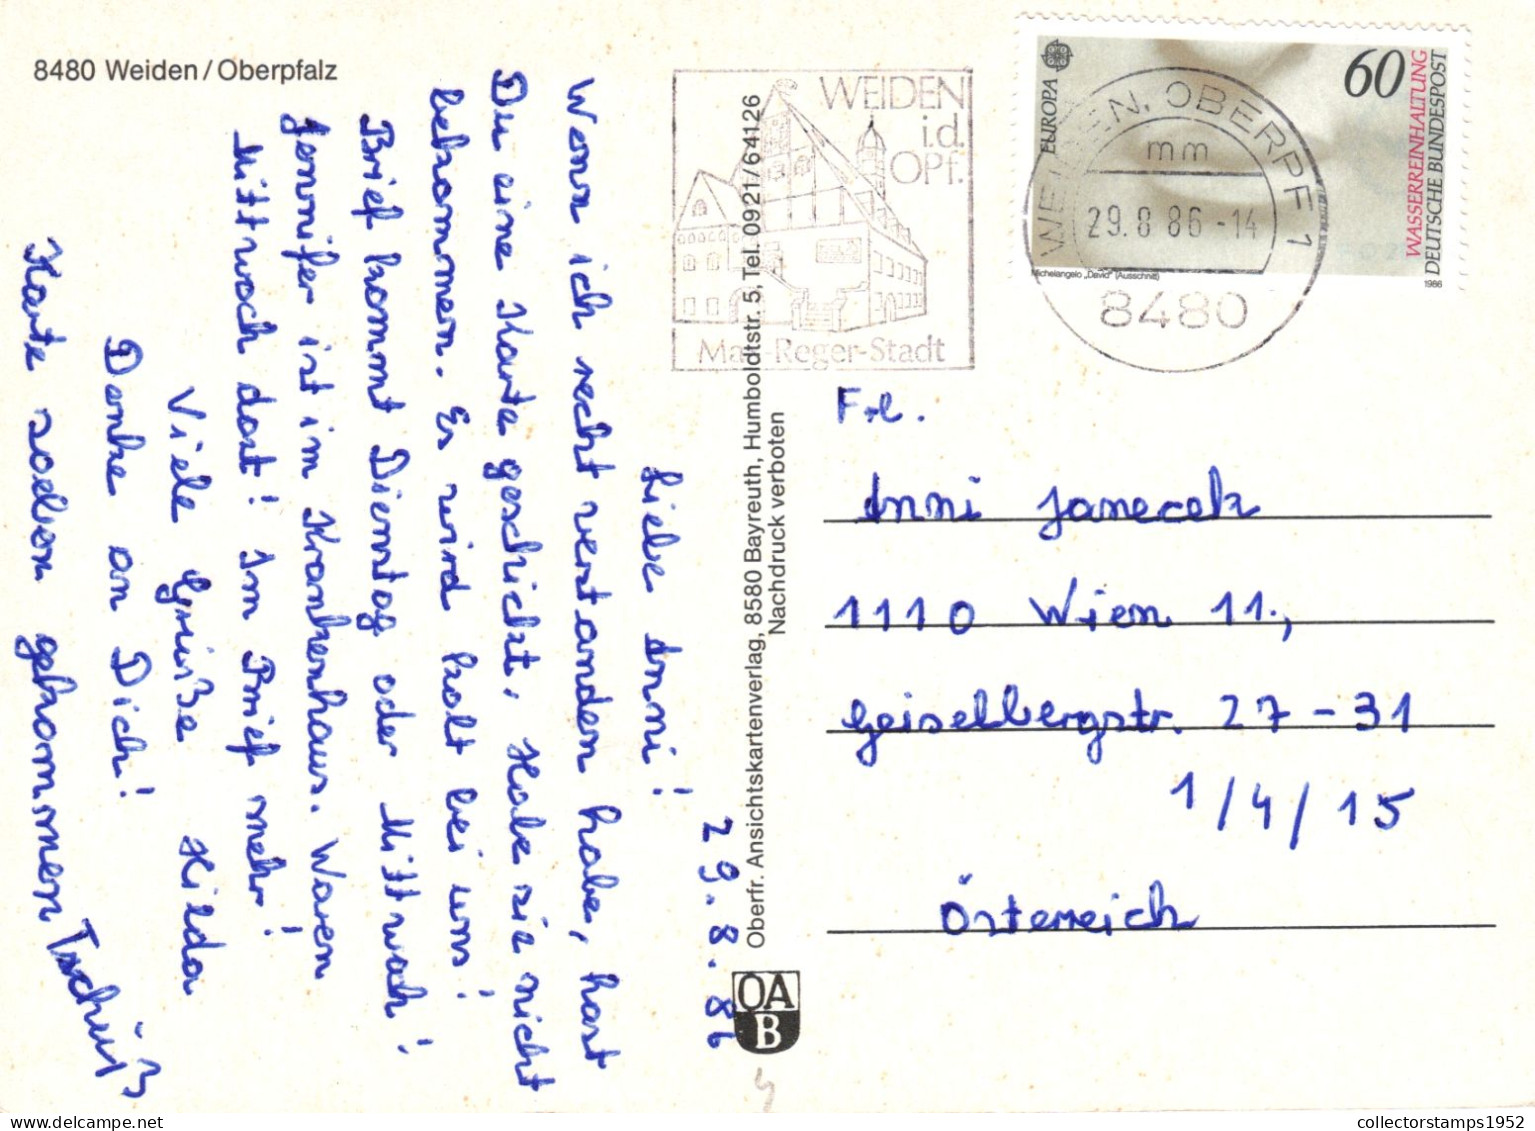 8480 Weiden/Oberpfalz
29.8.86
Liebe Anni!
Wenn ich recht verstanden habe, hast
Du eine Karte geschickt. Habe sie nicht
bekommen. Es wird kalt bei uns!
Brief kommt Dienstag oder Mittwoch!
Jennifer ist im Krankenhaus. Waren
Mittwoch dort! Im Brief mehr!
Viele Grüße Hilda
Danke an Dich!
Karte soeben gekommen Tschüß
Oberfr. Ansichtskartenverlag, 8580 Bayreuth, Humboldtstr. 5, Tel. 0921/64126
Nachdruck verboten
OA
B
WEIDEN
i.d.
OPf.
Max-Reger-Stadt
WEIDEN, OBERPF 1
mm
29.8.86-14
8480
EUROPA
60
WASSERREINHALTUNG
DEUTSCHE BUNDESPOST
Michelangelo „David" (Ausschnitt)
1986
Frl.
Anni Janecek
1110 Wien 11.,
Geiselbergstr. 27-31
1/4/15
Österreich
collectorstamps1952